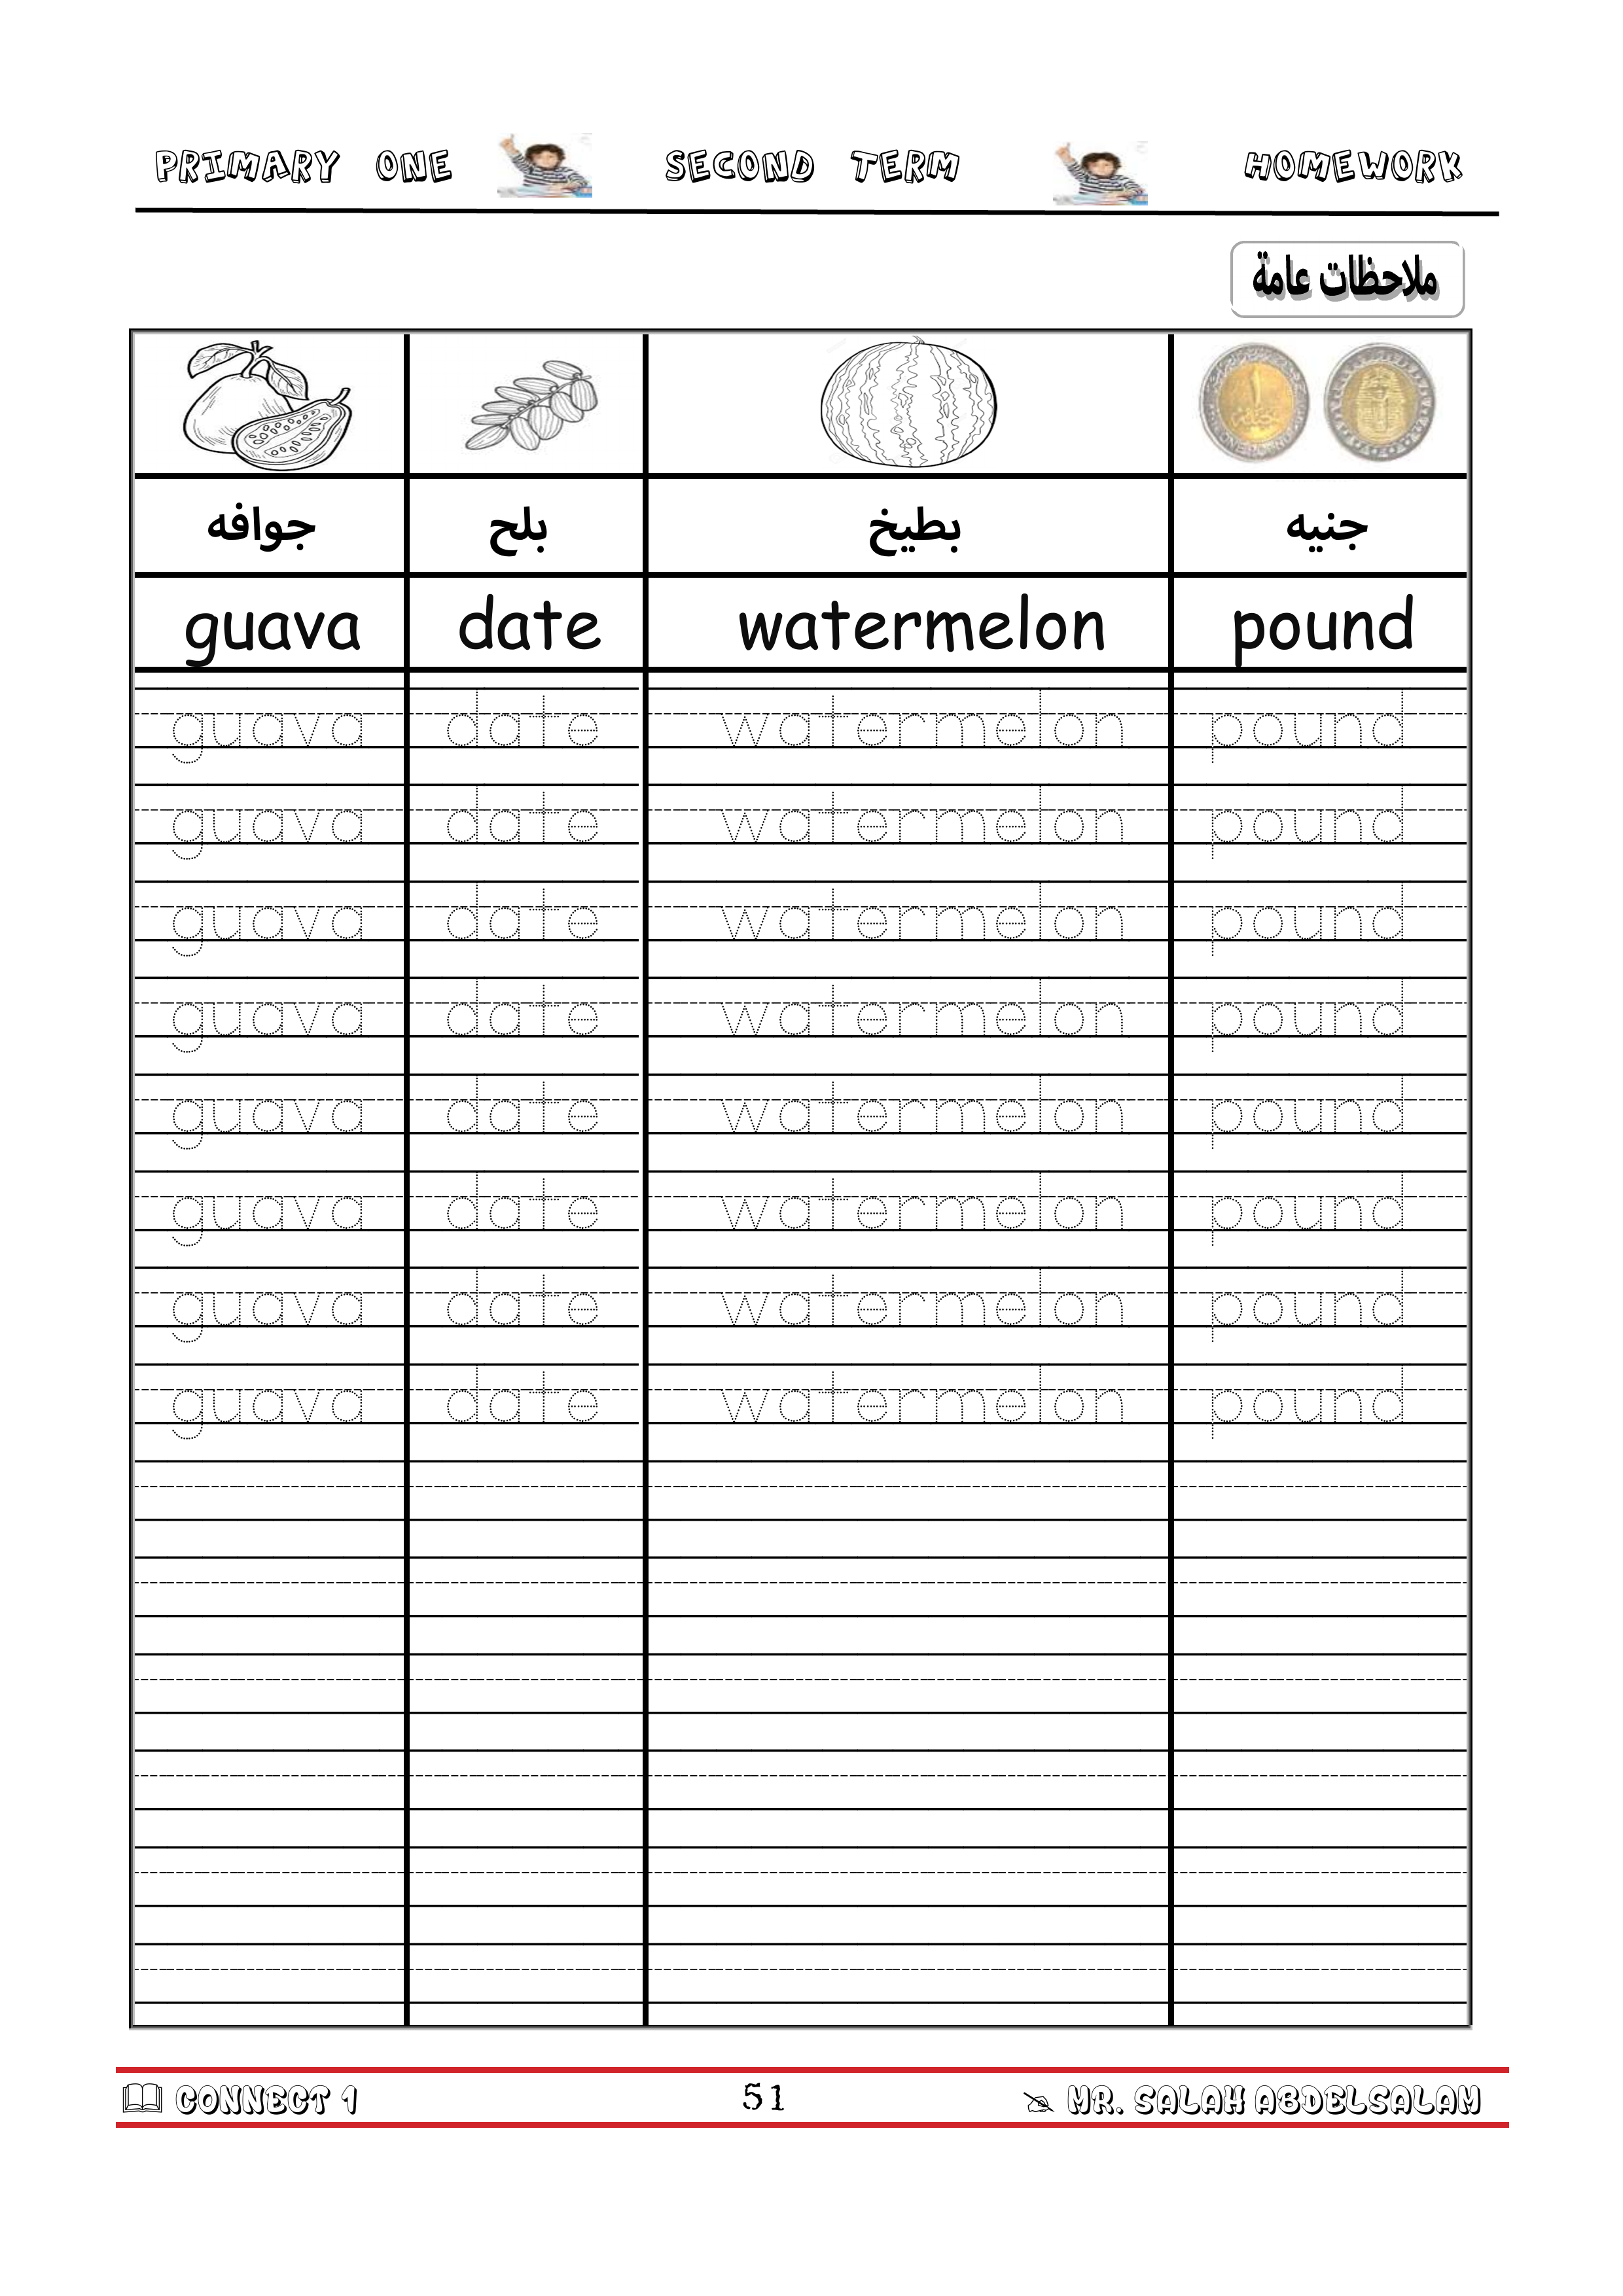 PRIMARY ONE SECOND TERM HOMEWORK
ملاحظات عامة
جوافه بلح بطيخ جنيه
guava date watermelon pound
guava date watermelon pound
guava date watermelon pound
guava date watermelon pound
guava date watermelon pound
guava date watermelon pound
guava date watermelon pound
guava date watermelon pound
guava date watermelon pound
CONNECT 1 51 MR. SALAH ABDELSALAM